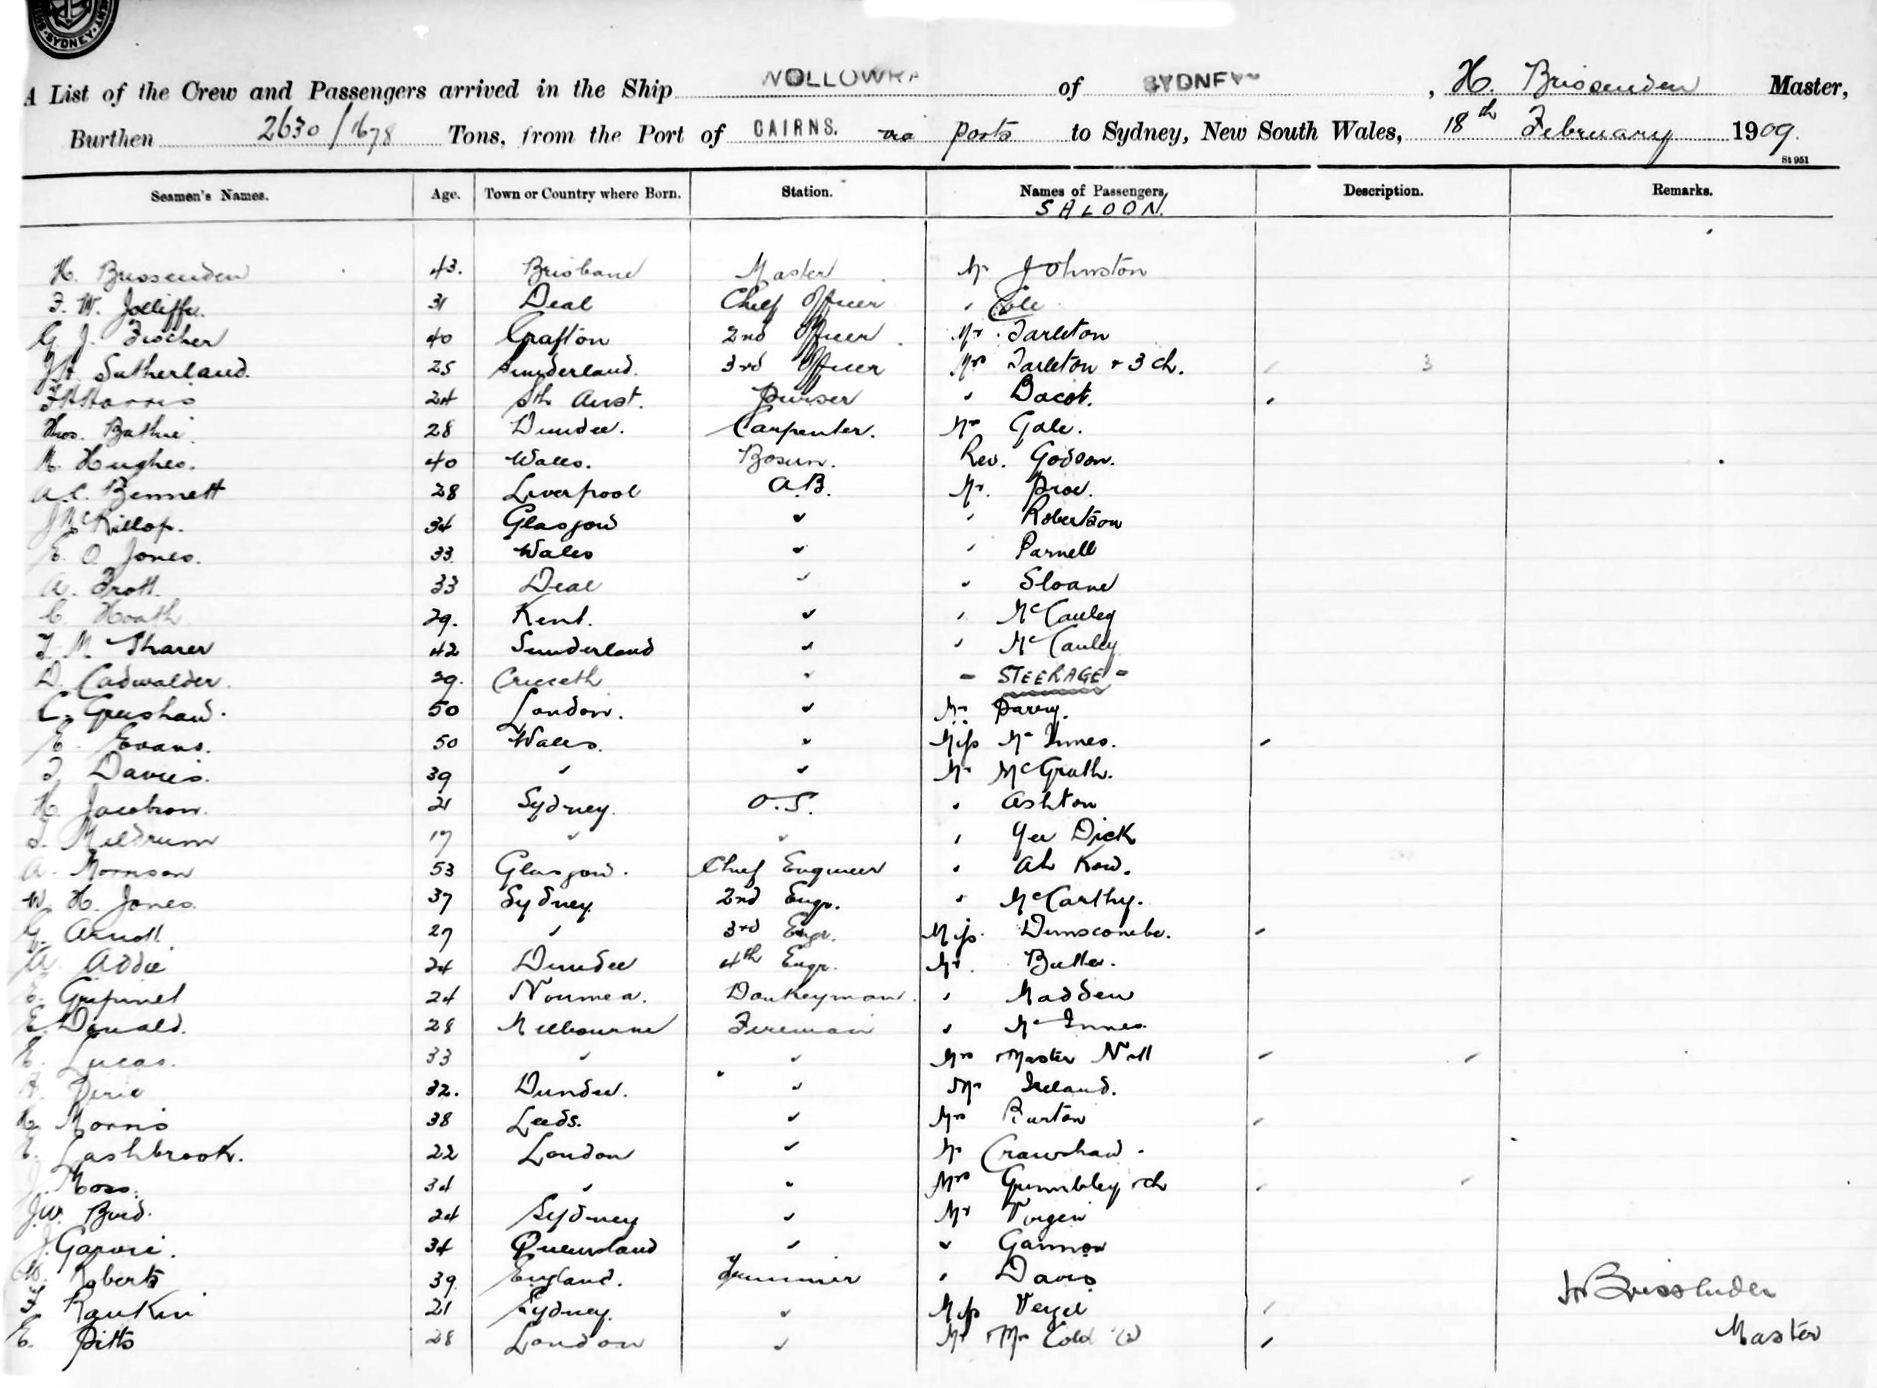 SYDNEY
A List of the Crew and Passengers arrived in the Ship WOLLOWRA of SYDNEY, H. Brissenden Master,
Burthen 2630/1678 Tons, from the Port of CAIRNS. via ports to Sydney, New South Wales, 18th February 1909.
St 951
Seamen's Names. Age. Town or Country where Born. Station. Names of Passengers. Description. Remarks.
SALOON.
H. Brissenden 43. Brisbane Master Mr Johnston
F. W. Jolliffe. 31 Deal Chief Officer " Cole
G J. Fischer 40 Grafton 2nd Officer Mr Tarleton
Sutherland. 25 Sunderland. 3rd Officer Mrs Tarleton + 3 ch. 3
Harris 24 Sth Aust. Purser " Bacot.
Thos. Bathie. 28 Dundee. Carpenter. Mr Gale.
Hughes. 40 Wales. Bosun. Rev. Godson.
A.C. Bennett 28 Liverpool A.B. Mr.
J McKillop. 34 Glasgow " " Robertson
E. O Jones. 33 Wales " " Parnell
A. Trott. 33 Deal " " Sloane
C Hoath 29. Kent. " " McCauley
T. M 42 Sunderland " " McCauley
D. Cadwalder. 29. Cricceth " - STEERAGE -
C. Grershaw. 50 London. " Mr Parry.
E. Evans. 50 Wales. " Miss McInnes.
Davies. 39 " " Mr McGrath.
H. Jacobson. 21 Sydney. O.S. " Ashton
Meldrum 17 " " " Yee Dick
A. Morrison 53 Glasgow. Chief Engineer " Ah Kow.
W. H. Jones. 37 Sydney 2nd Engr. " McCarthy.
G. Arnott. 27 " 3rd Engr. Miss. Dunscombe.
A. Addie 24 Dundee 4th Engr. Mr. Butler.
E. 24 Noumea. Donkeyman. " Madden
E. Donald. 28 Melbourne Fireman " McInnes.
E. Lucas. 33 " " Mrs + Master Noll
Pirie 32. Dundee. " Mr Ireland.
H. Morris 38 Leeds. " Mrs Burton
E. Lashbrook. 22 London " Mr Crawshaw.
J. Moss. 34 " " Mrs Grumbley + ch
J.W. Bird. 24 Sydney " Mr
J. Garvie. 34 Queensland " " Gannon
W. Roberts 39. England. Trimmer " Davis
F. Rankin 21 Sydney. " Miss
E. Pitts 28 London " Mr + Mrs Cold (2)
H Brissenden
Master